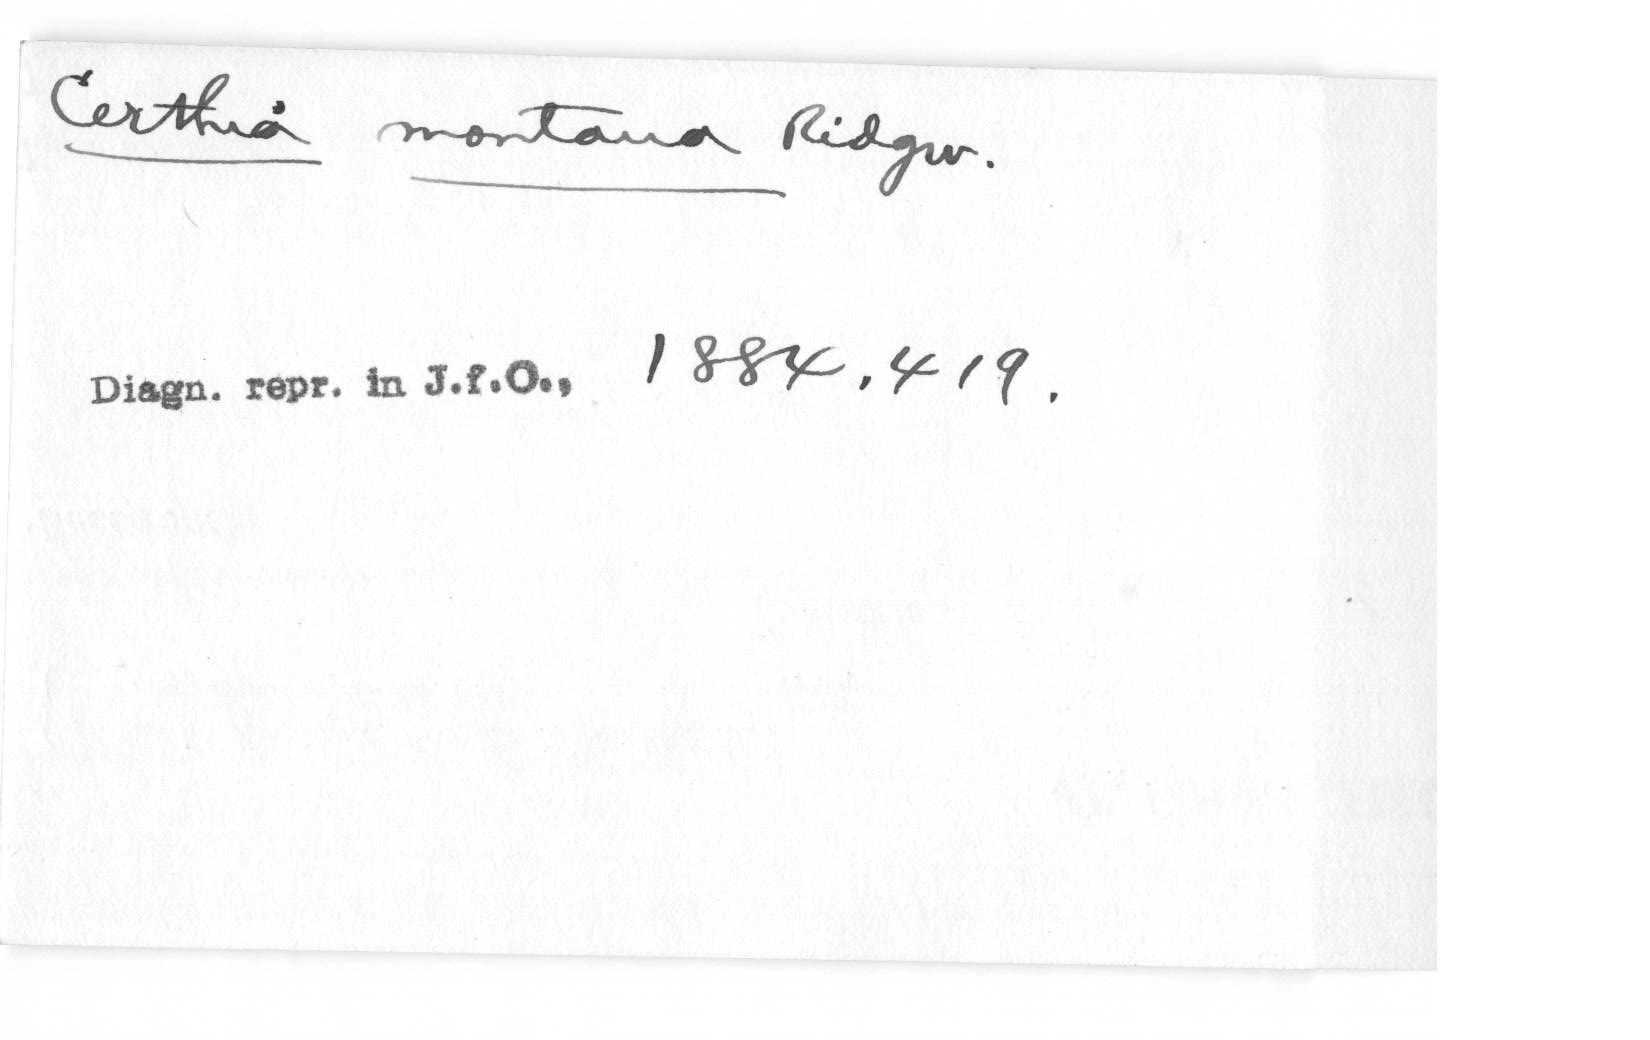 Certhia montana Ridgw.
Diagn. repr. in J.f.O., 1884, 419.